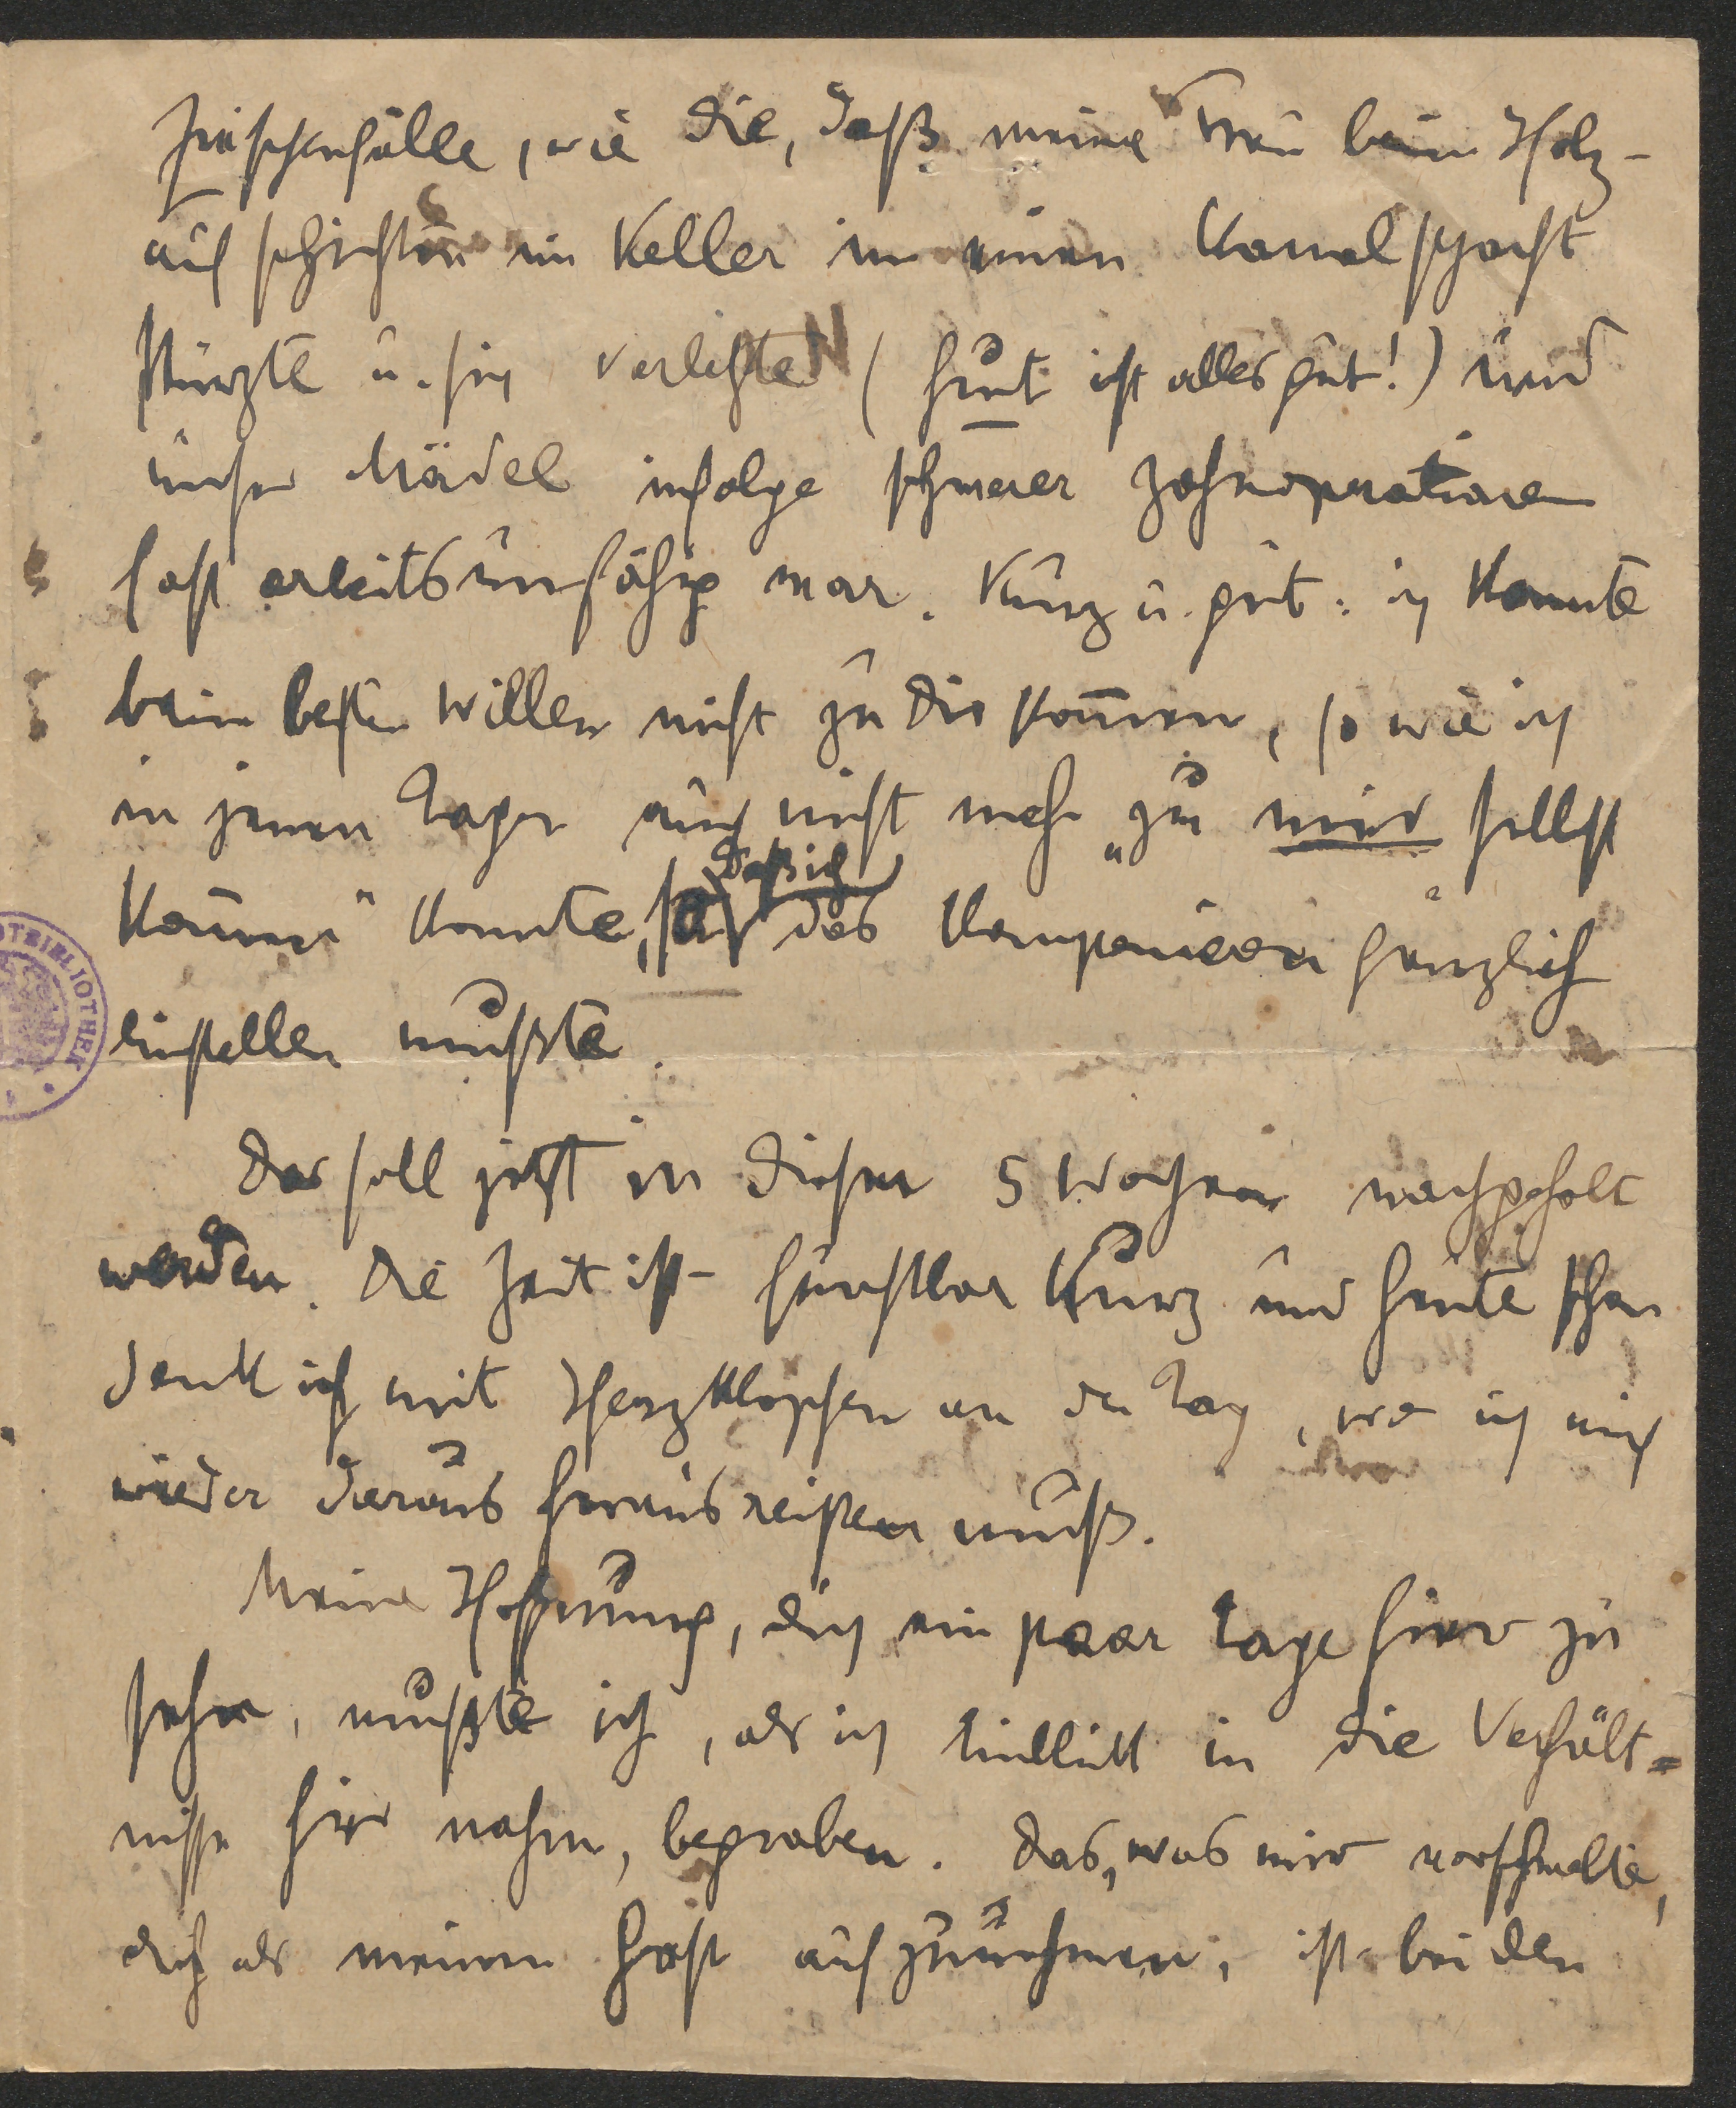 Zwischenfälle, wie die, daß meine Frau beim Holz-
aufschichten im Keller in einen Kanalschacht
stürzte u. sich verletzte (heut ist alles gut!) und
unser Mädel infolge schwerer Zahnoperationen
fast arbeitsunfähig war. Kurz u. gut: ich konnte
beim besten Willen nicht zu Dir kommen, so wie ich
in jenen Tagen auch nicht mehr „zu mir selbst
kommen" konnte, so daß ich das Komponieren gänzlich
einstellen mußte.
Das soll jetzt in diesen 5 Wochen nachgeholt
werden. Die Zeit ist furchtbar kurz und heute schon
denk ich mit Herzklopfen an den Tag, wo ich mich
wieder daraus herausreißen muß.
Meine Hoffnung, Dich ein paar Tage hier zu
sehen, mußte ich, als ich Einblick in die Verhält=
nisse hier nahm, begraben. Das, was mir vorschwebte,
Dich als meinen Gast aufzunehmen, ist bei den
OTBIBLIOTHEK